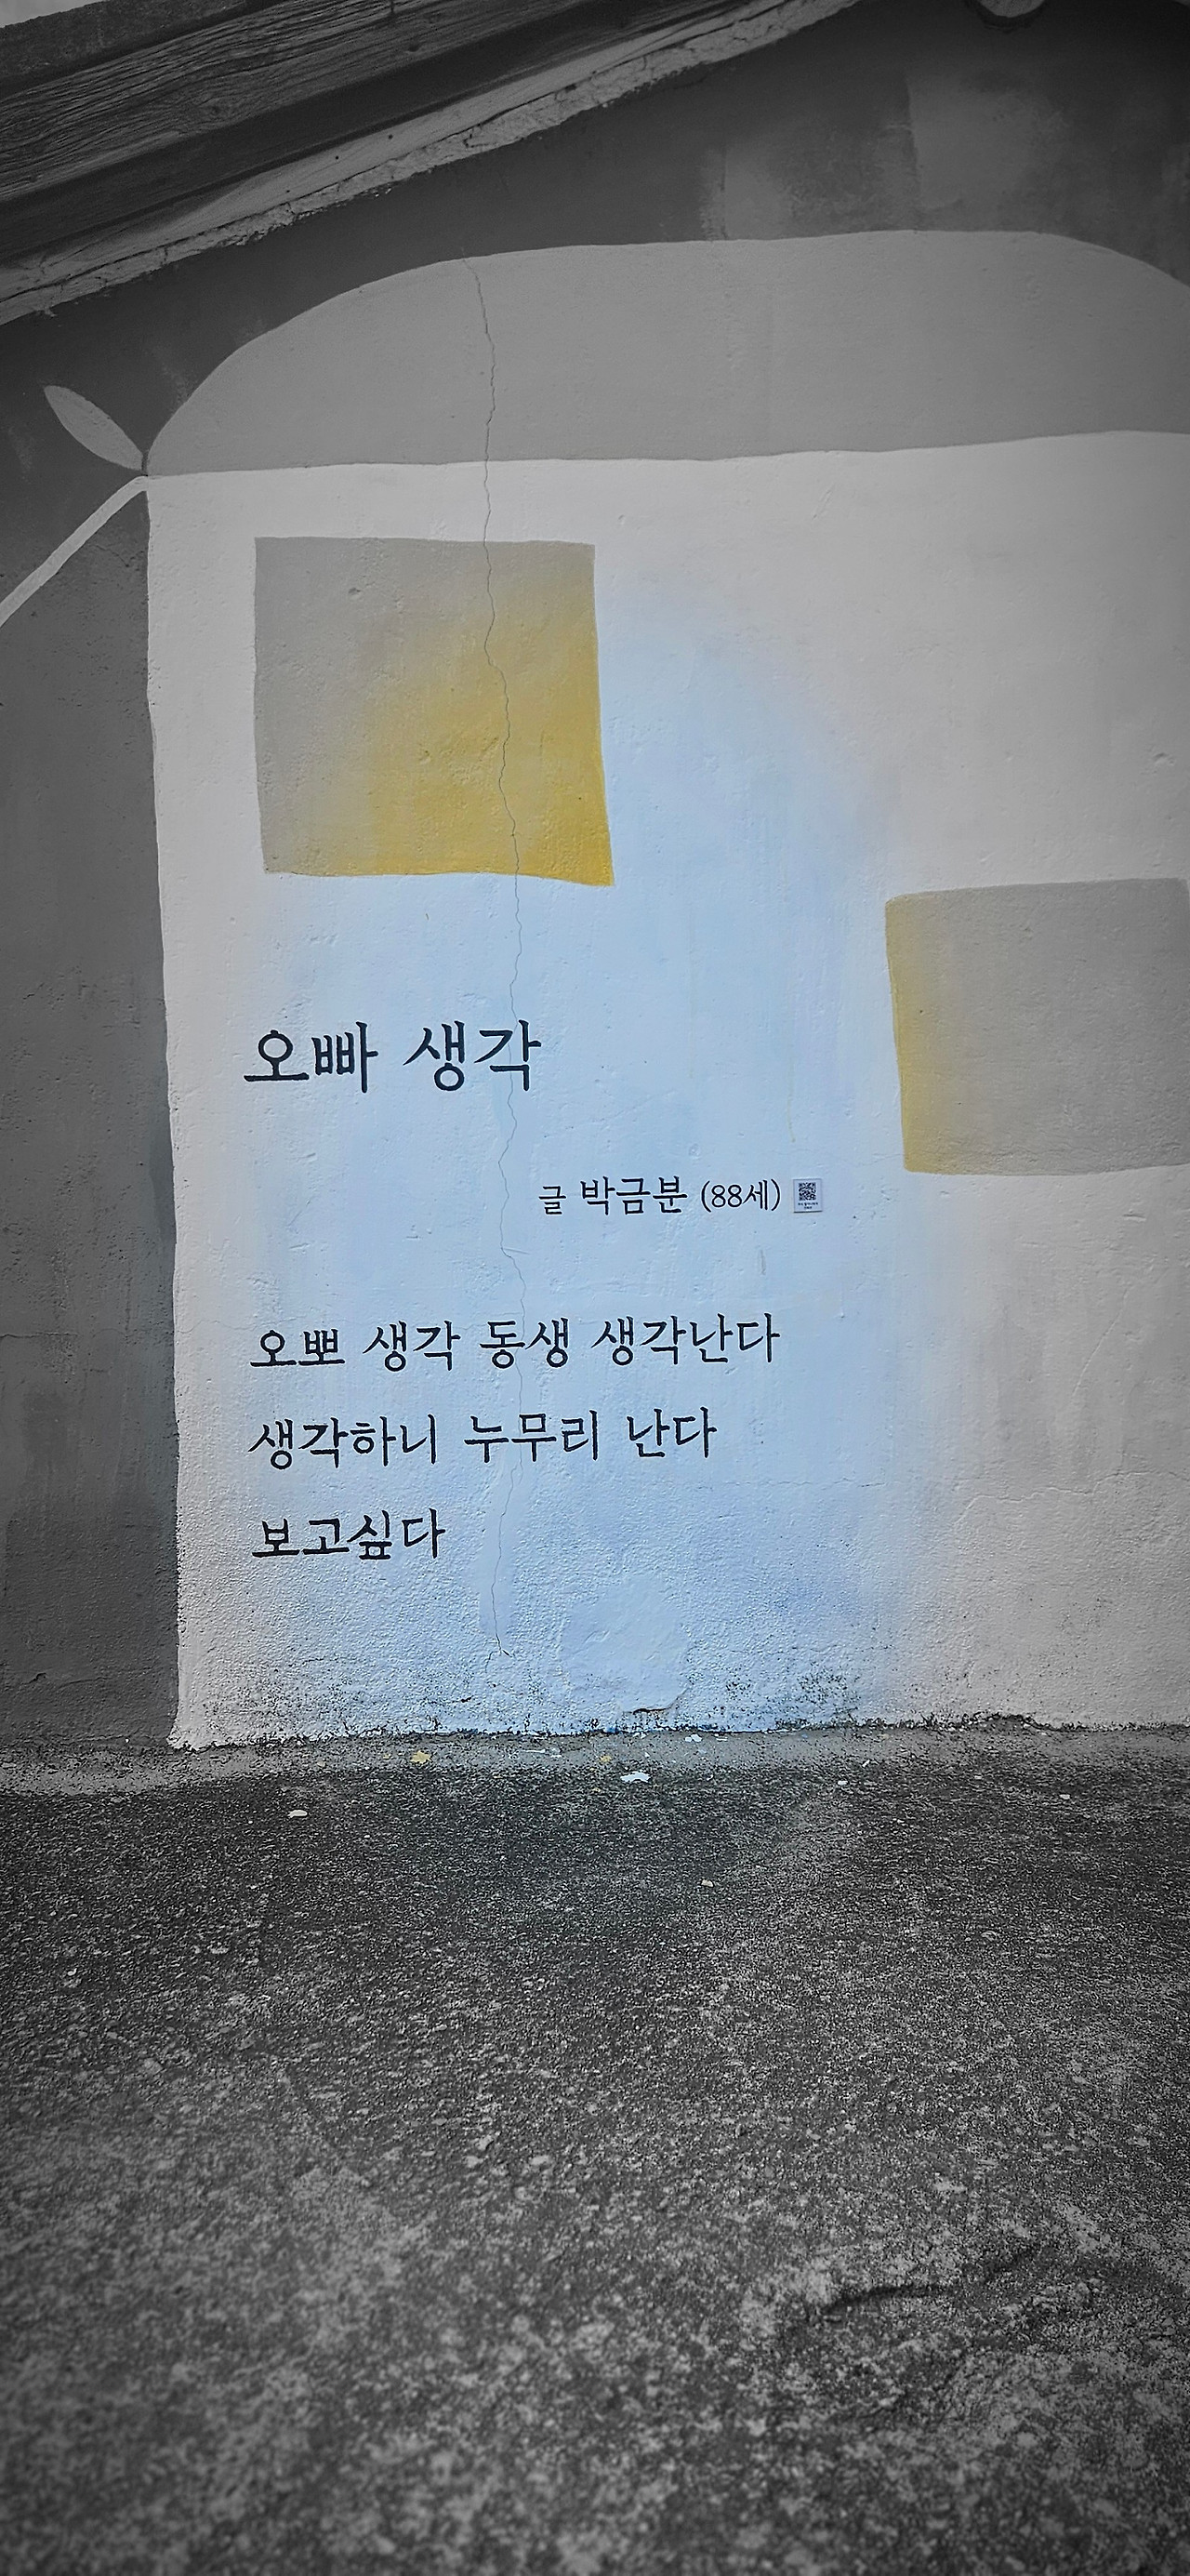 오빠 생각
글 박금분 (88세)
오뽀 생각 동생 생각난다
생각하니 누무리 난다
보고싶다